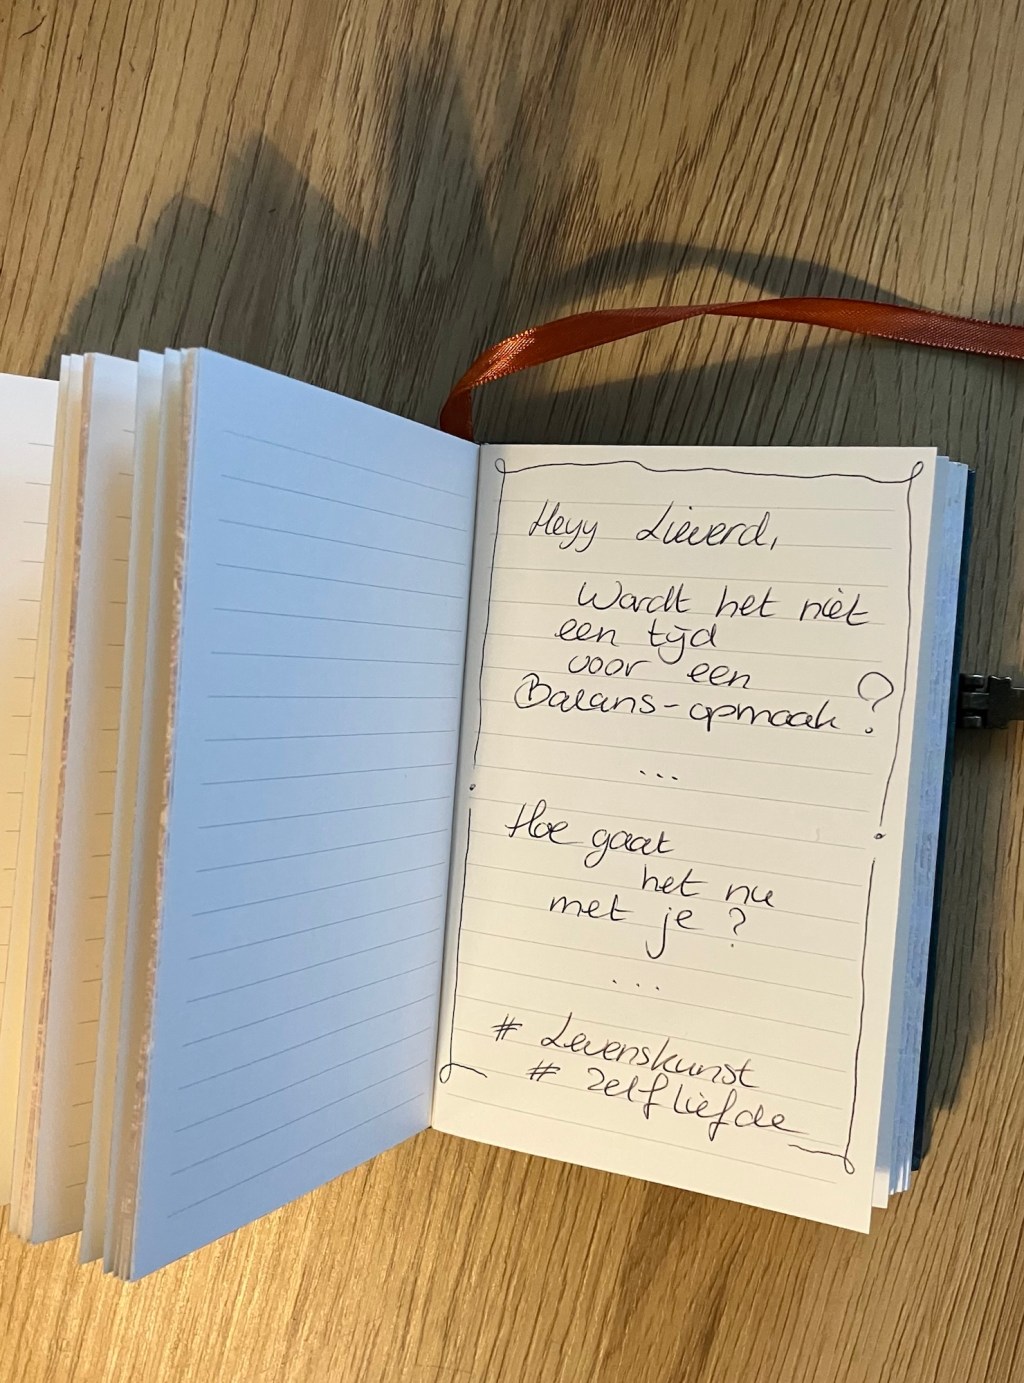 Heyy Lieverd,
Wordt het niet
een tijd
voor een
Balans-opmaak ?
...
Hoe gaat
het nu
met je ?
...
# Levenskunst
# Zelfliefde